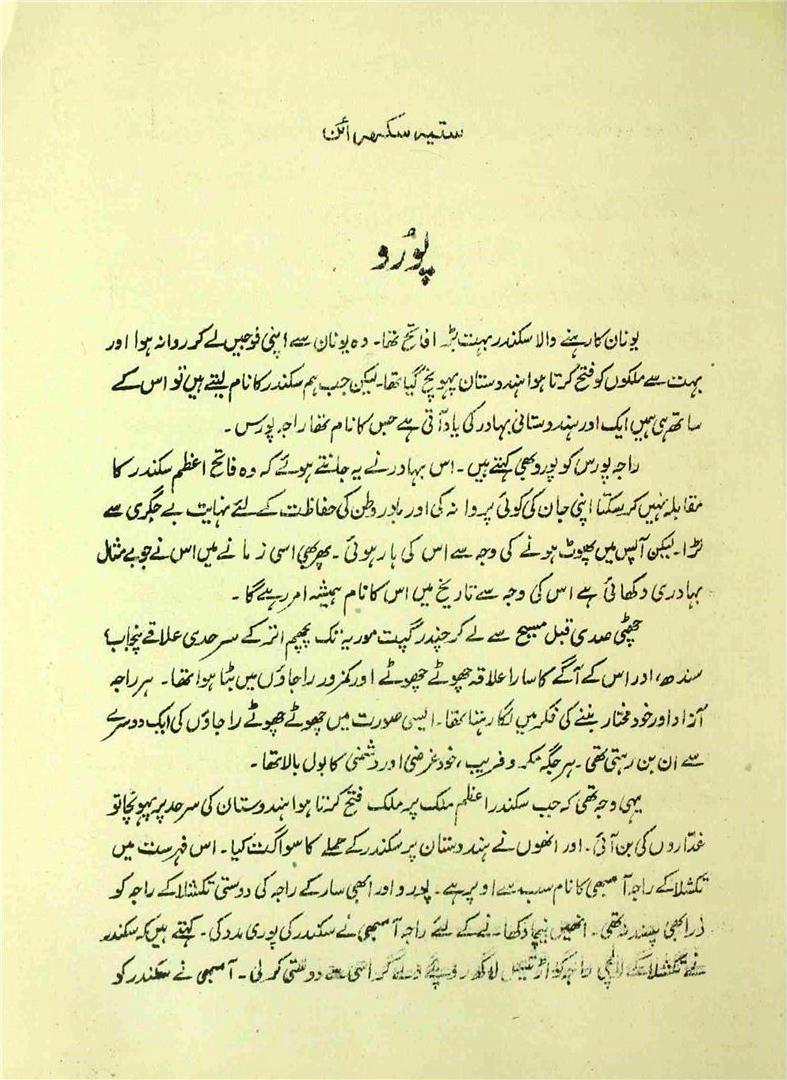 ستیہ سکھر ائن
پُورو
یونان کا رہنے والا سکندر بہت بڑا فاتح تھا۔ وہ یونان سے اپنی فوجیں لے کر روانہ ہوا اور
بہت سے ملکوں کو فتح کرتا ہوا ہندوستان پہونچ گیا تھا۔ لیکن جب ہم سکندر کا نام لیتے ہیں تو اس کے
ساتھ ہی ہمیں ایک اور ہندوستانی بہادر کی یاد آتی ہے جس کا نام تھا راجہ پورس۔
راجہ پورس کو پورو بھی کہتے ہیں۔ اس بہادر نے یہ جانتے ہوئے کہ وہ فاتح اعظم سکندر کا
مقابلہ نہیں کر سکتا اپنی جان کی کوئی پروا نہ کی اور مادر وطن کی حفاظت کے لئے نہایت بے جگری سے
لڑا۔ لیکن آپس میں پھوٹ ہونے کی وجہ سے اس کی ہار ہوئی۔ پھر بھی اسی زمانے میں اس نے جو بے مثال
بہادری دکھائی ہے اس کی وجہ سے تاریخ میں اس کا نام ہمیشہ امر رہے گا۔
چھٹی صدی قبل مسیح سے لے کر چندر گپت موریہ تک پچھم اتر کے سرحدی علاقے پنجاب،
سندھ، اور اس کے آگے کا سارا علاقہ چھوٹے چھوٹے اور کمزور راجاؤں میں بٹا ہوا تھا۔ ہر راجہ
آزاد اور خود مختار بننے کی فکر میں لگا رہتا تھا۔ ایسی صورت میں چھوٹے چھوٹے راجاؤں کی ایک دوسرے
سے ان بن رہتی تھی۔ ہر جگہ مکر و فریب، خود غرضی اور دشمنی کا بول بالا تھا۔
یہی وجہ تھی کہ جب سکندر اعظم ملک پر ملک فتح کرتا ہوا ہندوستان کی سرحد پر پہونچا تو
غداروں کی بن آئی۔ اور انھوں نے ہندوستان پر سکندر کے حملے کا سواگت کیا۔ اس فہرست میں
تکشلا کے راجہ آمبھی کا نام سب سے اوپر ہے۔ پورو اور ابھی سار کے راجہ کی دوستی تکشلا کے راجہ کو
ذرا بھی پسند نہ تھی۔ انھیں نیچا دکھانے کے لئے راجہ آمبھی نے سکندر کی پوری مدد کی۔ کہتے ہیں کہ سکندر
نے تکشلا کے لالچی راجہ کو اڑتیس لاکھ روپے دے کر اسی سے دوستی کر لی۔ آمبھی نے سکندر کو